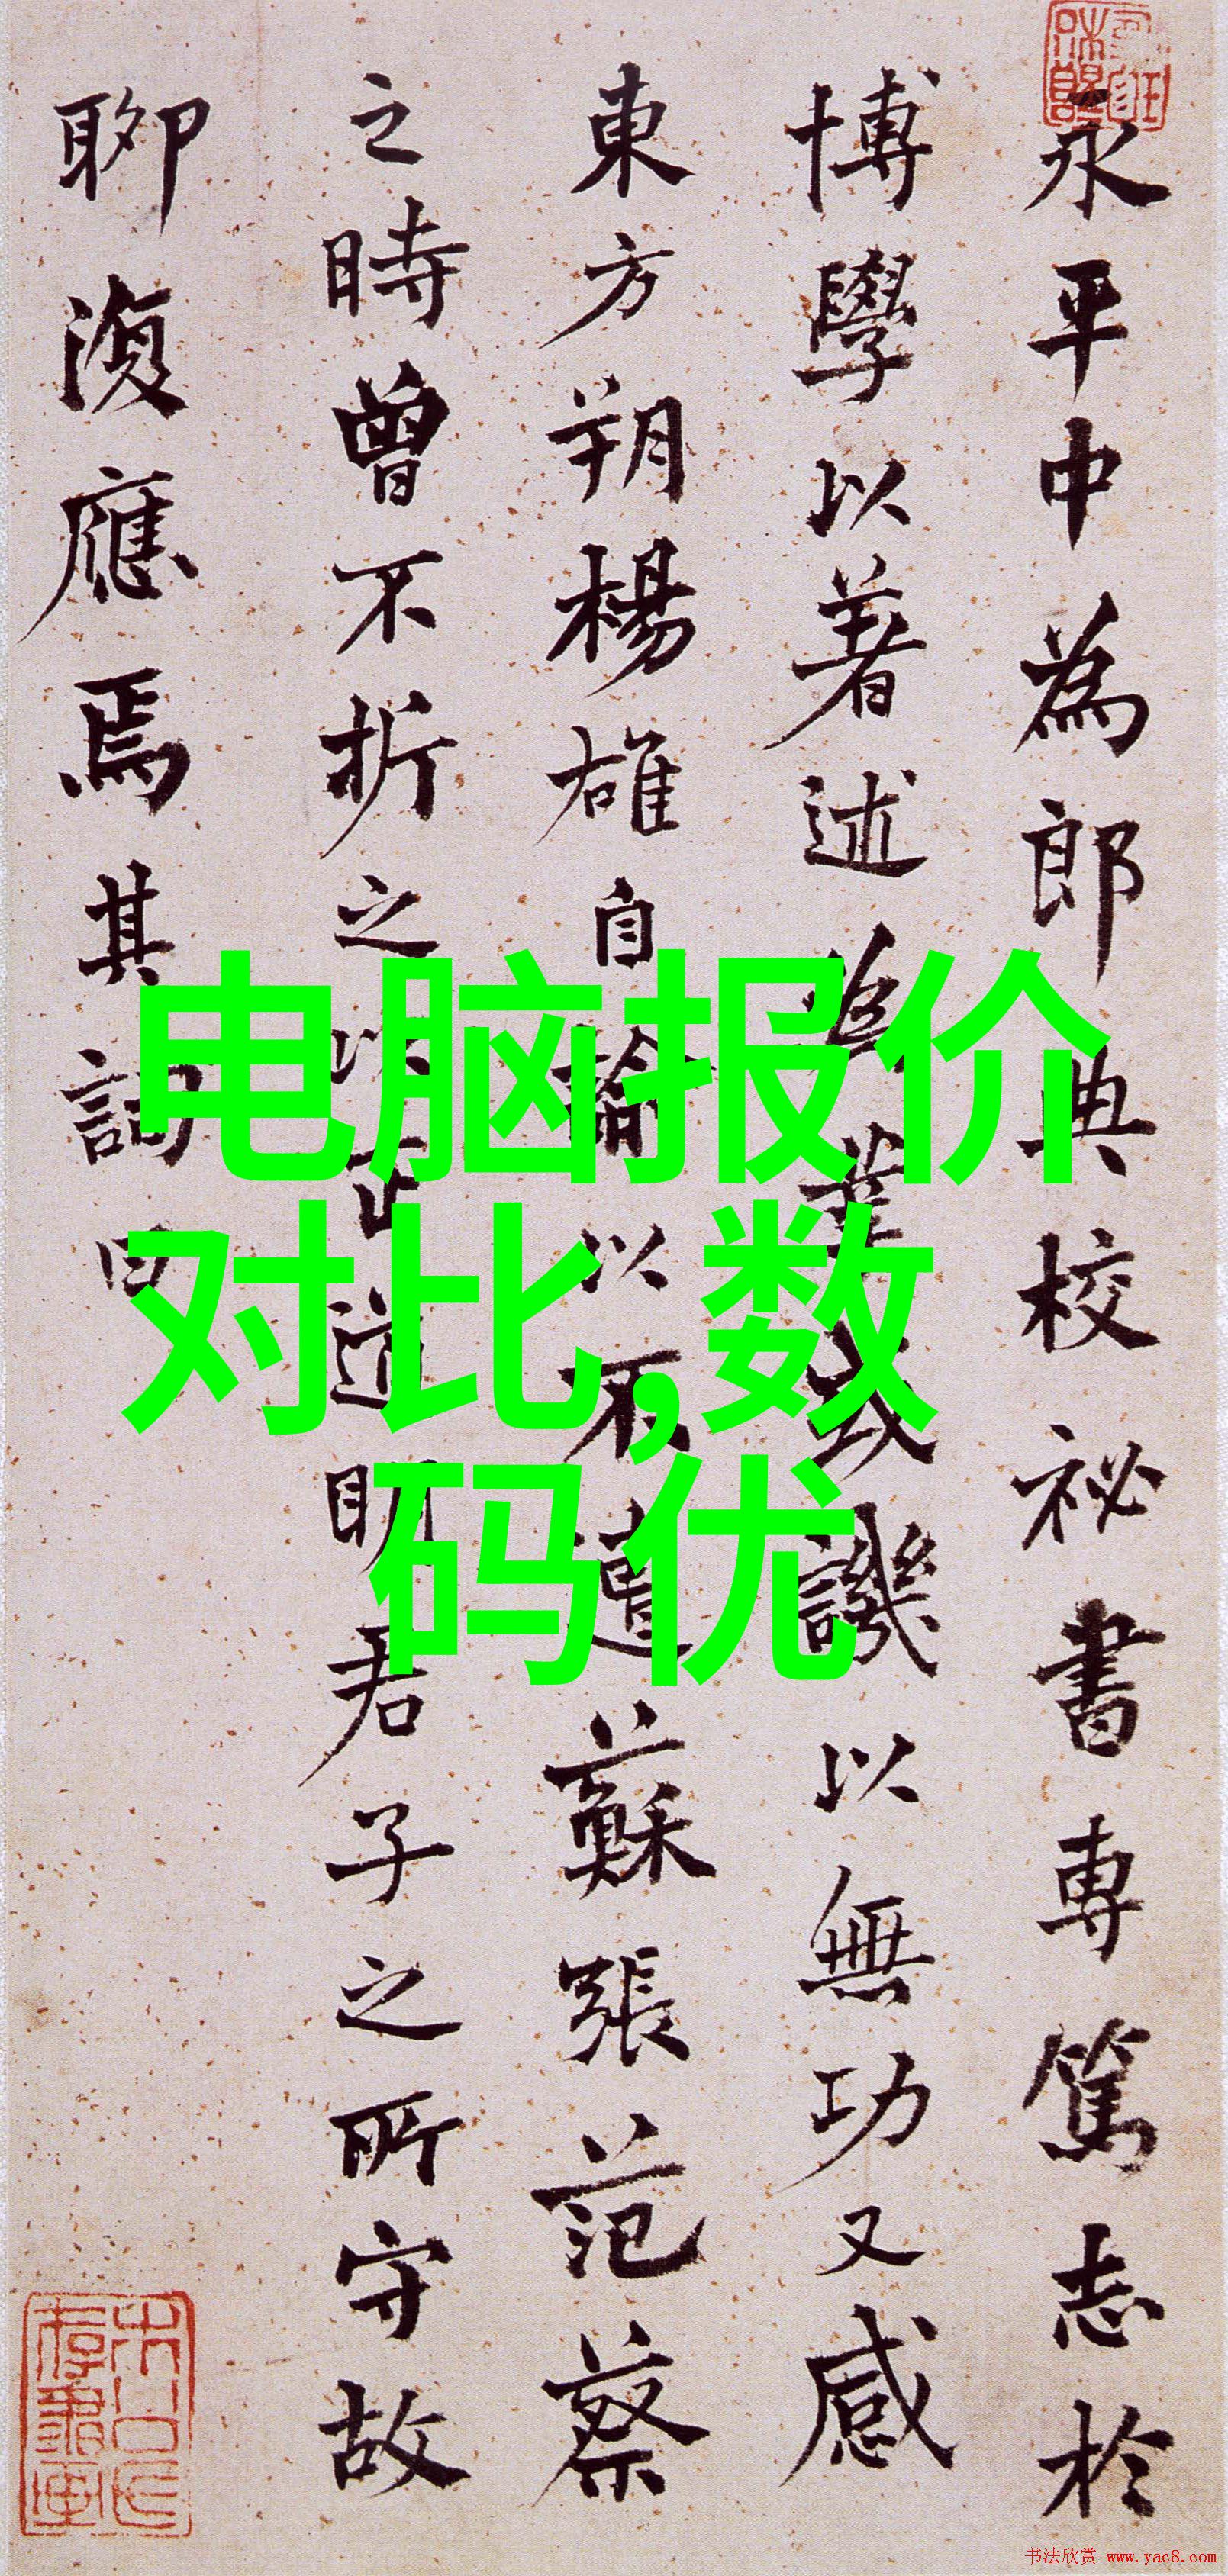 永平中為郎典校祕書專篤志於
博學以著述為業或譏以無功又感
東方朔楊雄自諭以不遭蘇張范蔡
之時曾不折之以正道明君子之所守故
聊復應焉其詞曰
电脑报价
对比,数
码优
书法欣赏 www.yac8.com